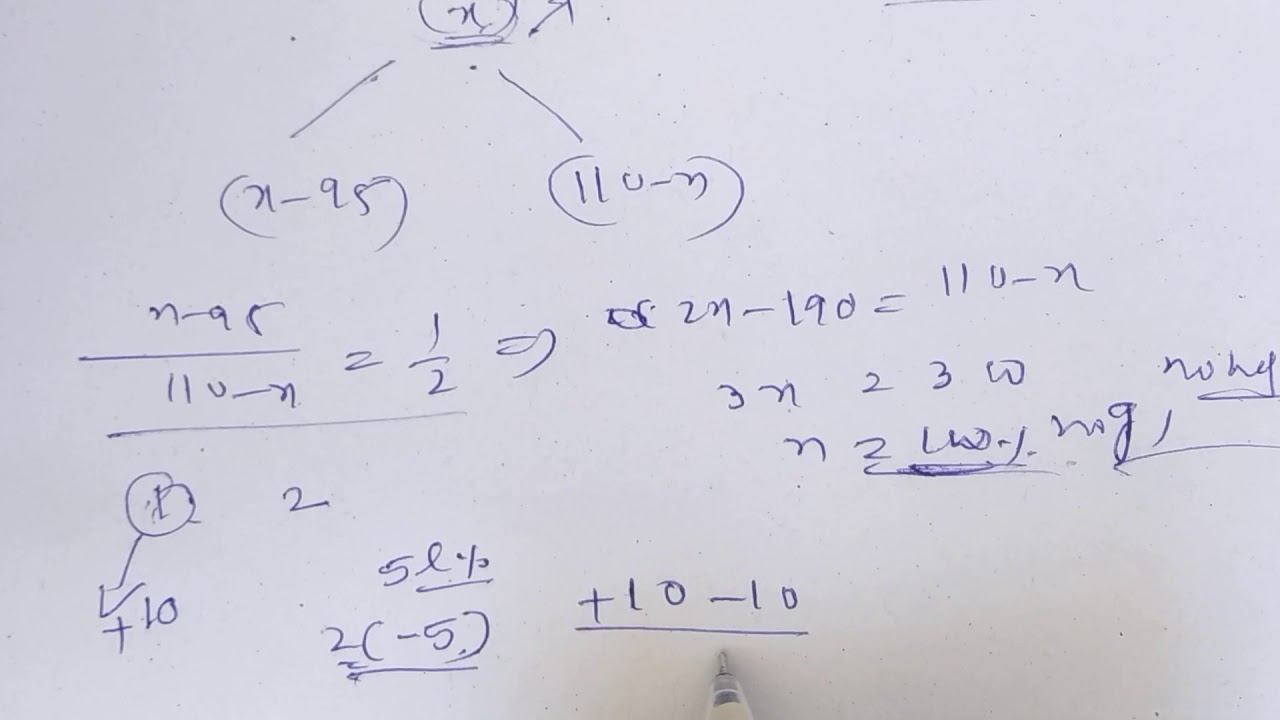 (x)
(x-95) (110-x)
x-95 / 110-x = 1/2 ⇒ 2x-190 = 110-x
3x = 300
x = 100%
1 2
+10
5l%
2(-5)
+10-10